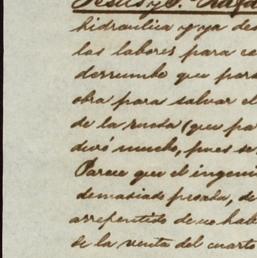 Jesús y S. Rafa
hidraulica y ya des
las labores para co
derrumbe que para
obra para salvar el
de la rueda (que pa
duró mucho, pues se
Parece que el ingeni
demasiado pesada, de
arrepentido de no hab
de la venta del cuarto